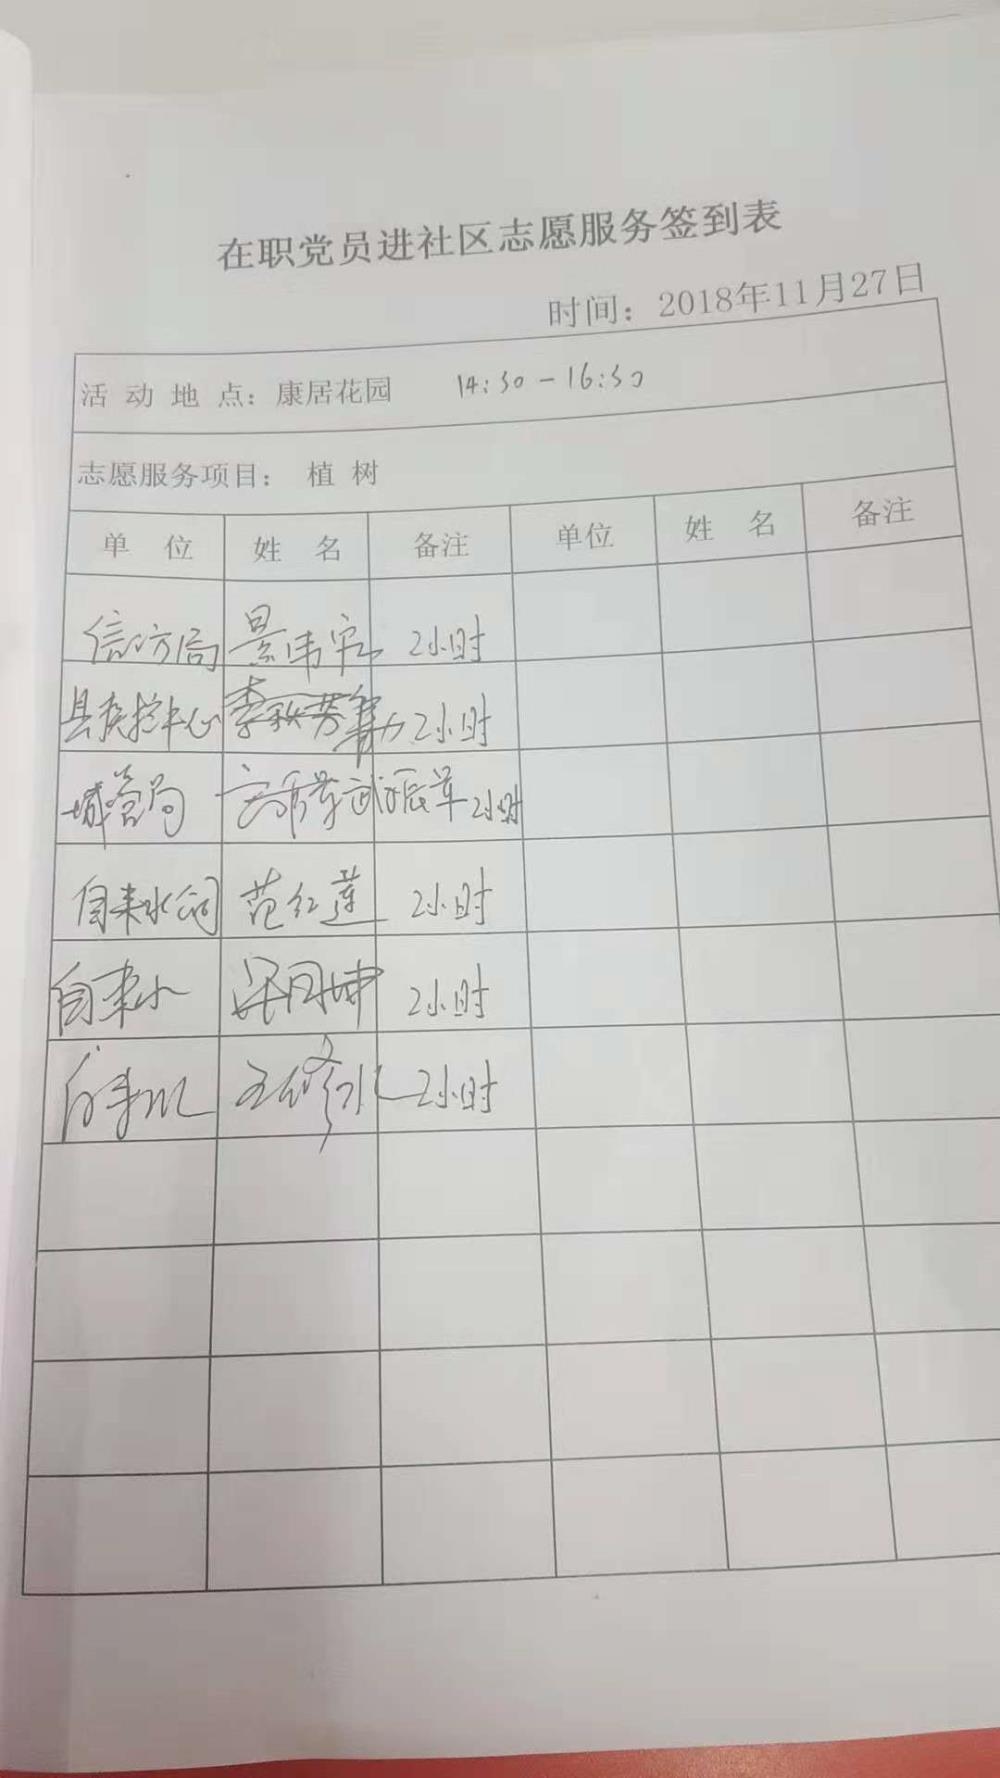 在职党员进社区志愿服务签到表
时间：2018年11月27日
活动地点：康居花园 14:30-16:30
志愿服务项目：植树
单位 姓名 备注 单位 姓名 备注
信访局 景伟宏 2小时
县疾控中心 李秋芳 2小时
城管局 武振军 2小时
自来水公司 范红莲 2小时
自来水 2小时
自来水 王修水 2小时